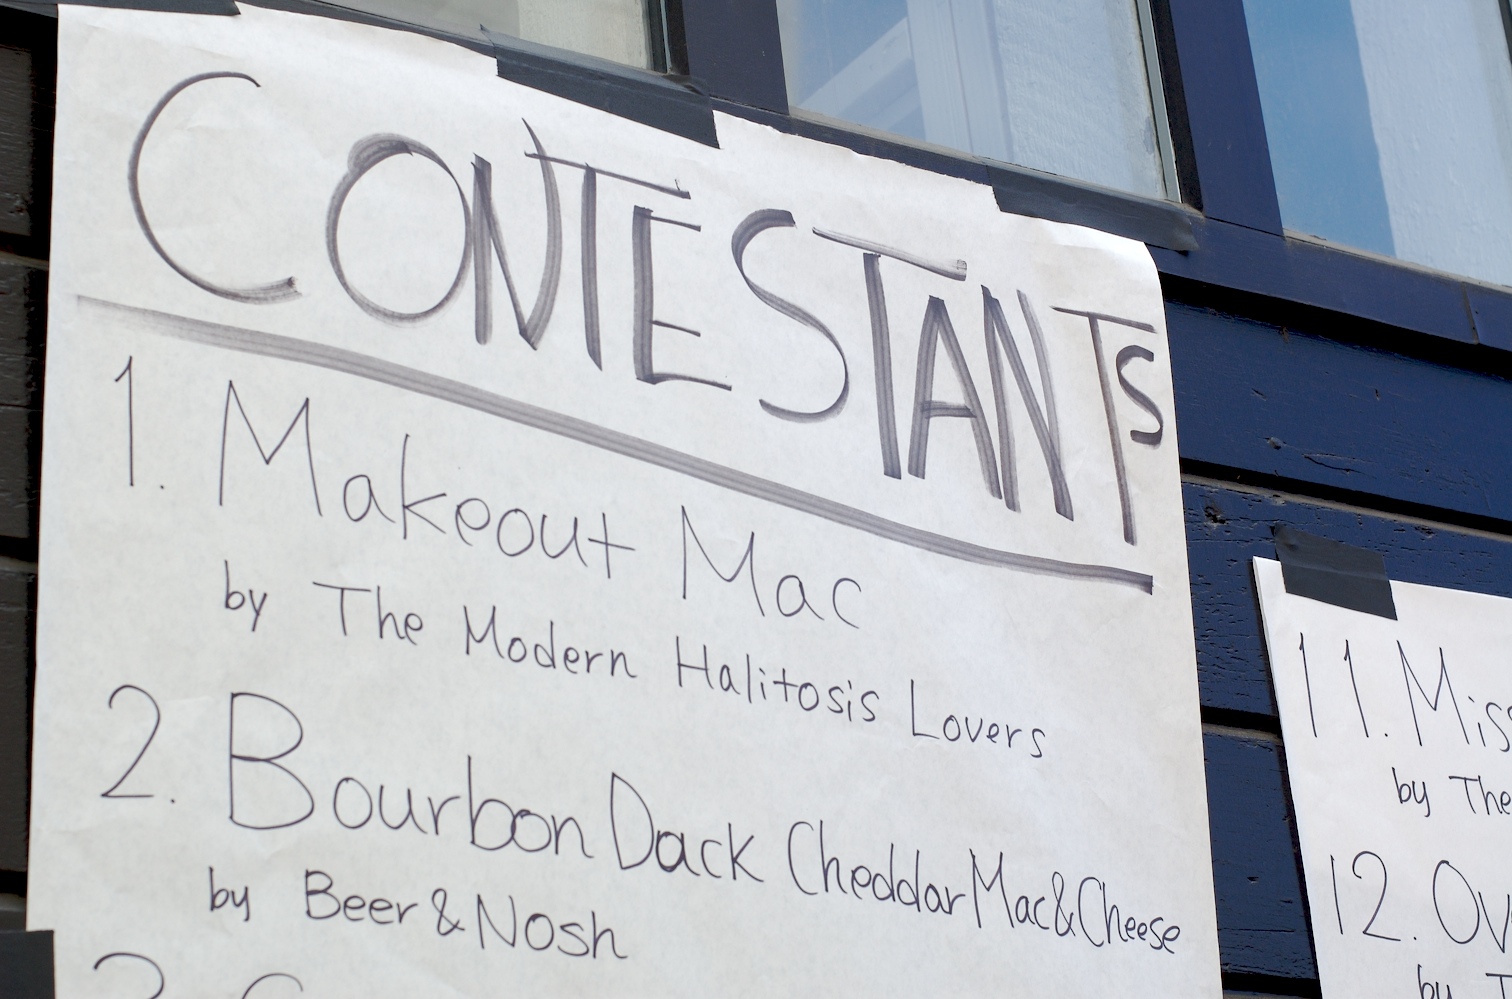 CONTESTANTS
1. Makeout Mac
by The Modern Halitosis Lovers
2. Bourbon Dack Cheddar Mac & Cheese
by Beer & Nosh
3.
11. Mis
by The
12. Ov
by T